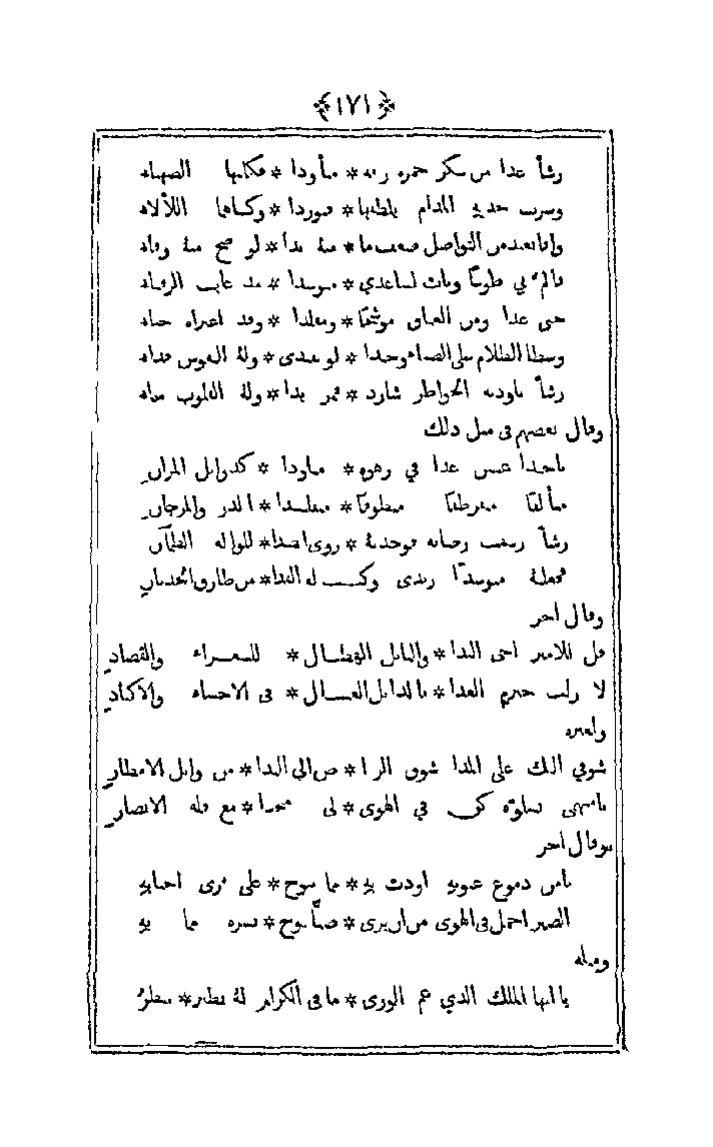 ﴿١٧١﴾
رشأ غدا من سكر خمرة ريقه * متأودا * فكانها الصهباء
وسرت حديا المدام بلطفها * فتوردا * وكساهما اللألاء
وافا بعد من التواصل صعب ما * منهُ بدا * لو صح منهُ وفاء
فالمّ بي طوعًا وبات لساعدي * متوسدا * مذ غابت الرقباء
حتى غدا ومن العناق موشحًا * ومقلدا * وقد اعتراه حياء
وسطا الظلام على الصباح وحبذا * لو يفتدى * ولهُ النفوس فداء
رشأ الخواطر شارد * قمر بدا * ولهُ القلوب سماء
وقال بعضهم في مثل ذلك
يا حبذا غصن غدا في زهوه * متاودا * كذوابل المران
متألقًا متقرطقًا متطوقًا * متقلدا * الدر والمرجان
رشأ رشفت رضابه فوجدتهُ * روى الصدا * للواله الظمآن
فجعلتهُ متوسدًا زندى وكنت له الفدا * من طارق الحدثان
وقال اخر
قل للامير اخى الندا * والنائل الهطال * للشعراء والقصاد
لا زلت خترم العدا * بالذابل العسال * في الاحشاء والاكباد
ولغيره
شوقي اليك على المدا شوق الر ا * ض الى الندا * من وابل الامطار
في الهوى * لى منجدا * مع قلة الانصار
وقال اخر
يا من دموع عيونهِ اودت بهِ * مما ينوح * على ثرى احبابهِ
الصبر اجمل في الهوى من ان يرى * صبًّا ينوح * بسره مما بهِ
ومثله
يا ايها الملك الذي عم الورى * ما في الكرام لهُ نظير * ينظرُ